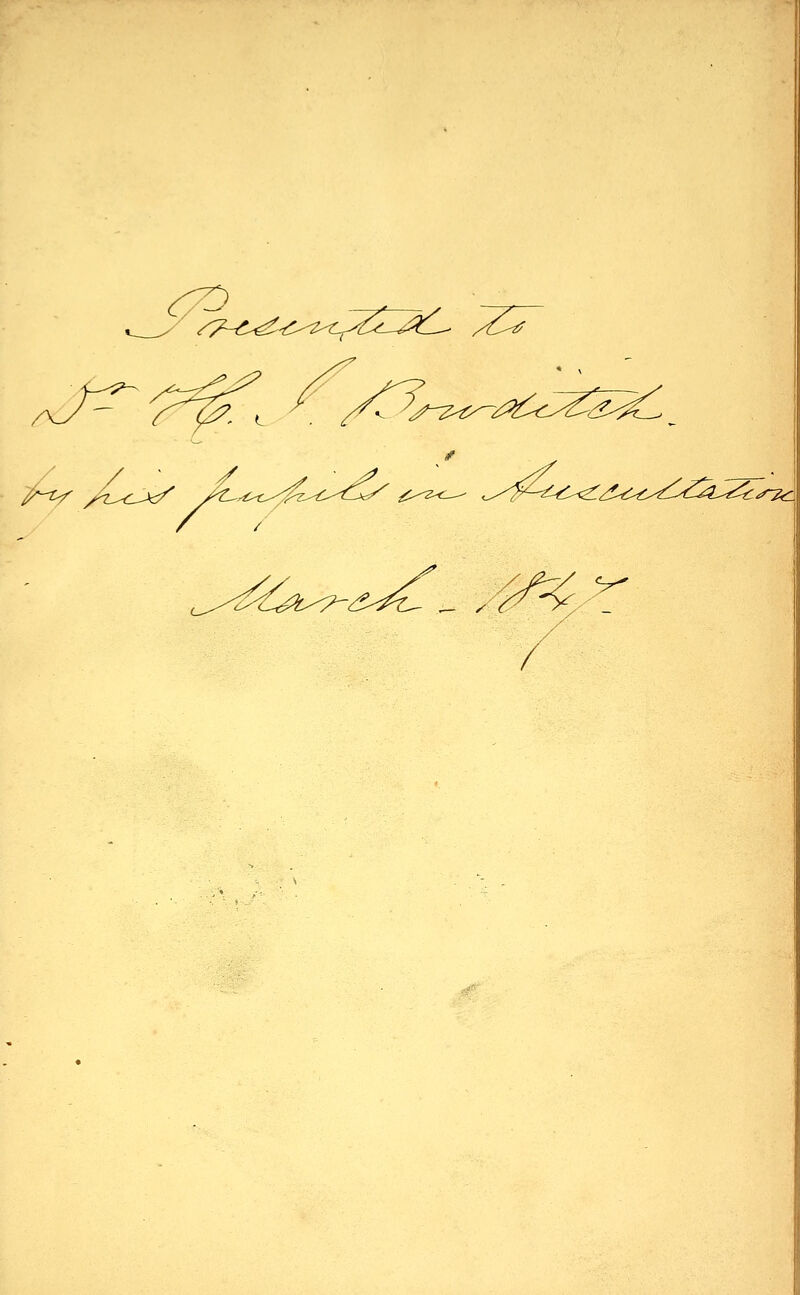 Presented to
Dr H. I. Bowditch.
by his pupils in Auscultation
March - 1847-